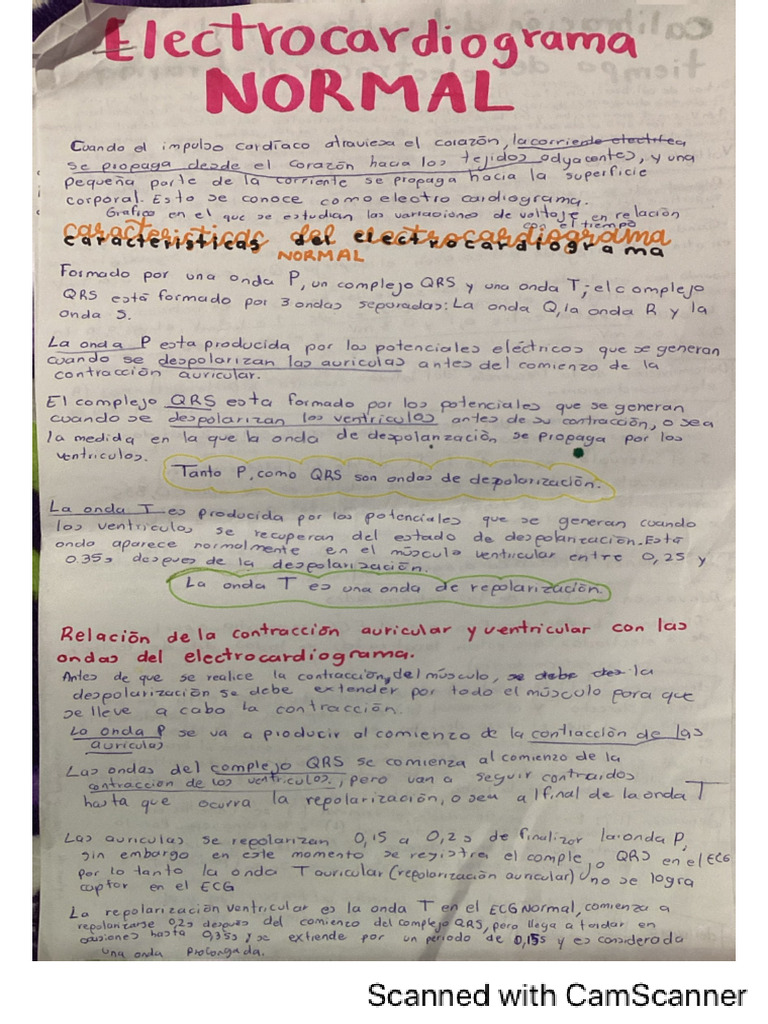 Electrocardiograma
NORMAL
Cuando el impulso cardíaco atraviesa el corazón, la corriente electrica
se propaga desde el corazón hacia los tejidos adyacentes, y una
pequeña parte de la corriente se propaga hacia la superficie
corporal. Esto se conoce como electro cardiograma.
Grafico en el que se estudian las variaciones de voltaje en relación
con el tiempo
características del electrocardiograma
NORMAL
Formado por una onda P, un complejo QRS y una onda T; el complejo
QRS está formado por 3 ondas separadas: La onda Q, la onda R y la
onda S.
La onda P esta producida por los potenciales eléctricos que se generan
cuando se despolarizan las auriculas antes del comienzo de la
contracción auricular.
El complejo QRS esta formado por los potenciales que se generan
cuando se despolarizan los ventriculos antes de su contracción, o sea
la medida en la que la onda de despolarización se propaga por los
ventriculos.
Tanto P, como QRS son ondas de depolarización.
La onda T es producida por los potenciales que se generan cuando
los ventriculos se recuperan del estado de despolarización. Esta
onda aparece normalmente en el músculo ventricular entre 0,25 y
0.35s despues de la despolarización.
La onda T es una onda de repolarización.
Relación de la contracción auricular y ventricular con las
ondas del electrocardiograma.
Antes de que se realice la contracción del músculo, se debe des la
despolarización se debe extender por todo el músculo para que
se lleve a cabo la contracción.
La onda P se va a producir al comienzo de la contracción de las
auriculas
Las ondas del complejo QRS se comienza al comienzo de la
contraccion de los ventriculos, pero van a seguir contraidos
hasta que ocurra la repolarización, o sea al final de la onda T
Las auriculas se repolarizan 0,15 a 0,2s de finalizar la onda P,
sin embargo en este momento se registra el complejo QRS en el ECG
por lo tanto la onda T auricular (repolarización auricular) no se logra
captar en el ECG
La repolarización ventricular es la onda T en el ECG Normal, comienza a
repolarizarse 0,2s después del comienzo del complejo QRS, pero llega a tardar en
ocasiones hasta 0,35s y se extiende por un periodo de 0,15s y es considerada
una onda prolongada.
Scanned with CamScanner